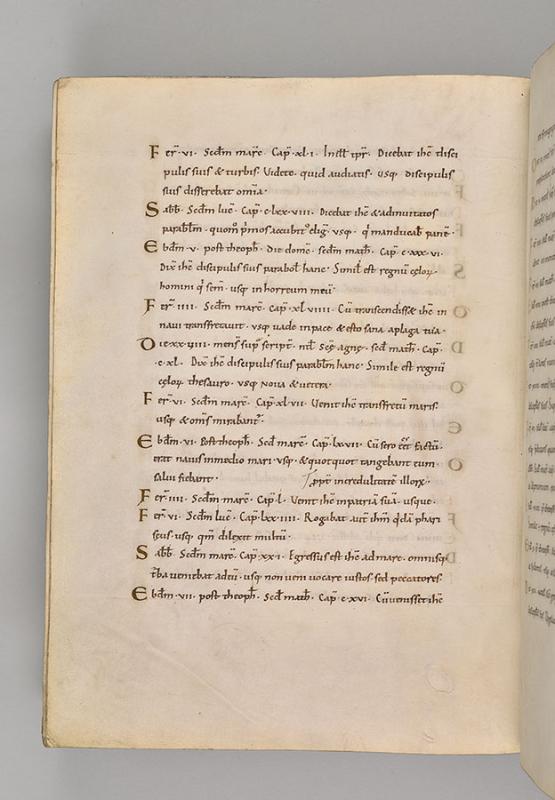 Fer̄·vi· Secdm̄ marc̄· Cap̄·xl·i· Dicebat ihc̄ disci
pulis suis & turbis· Videte· quid audiatis· usq· discipulis
suis differebat omia·
Sabb̄· Secdm̄ luc̄· Cap̄· c·lxx·viiii· Dicebat ihc̄ & ad inuitatos
parablm̄· usq· q̄ manducab̄ panē·
Ebdm̄·v· post theoph̄· Die domc̄· secdm̄ math̄· Cap̄· c·xxx·vi·
Dix̄ ihc̄ discipulis suis parabol̄ hanc· Simil̄ est regnū cęloꝝ·
homini q̄ sem̄· usq· in horreum meū·
Fer̄·iiii· Secdm̄ marc̄· Cap̄·xl·viiii· Cū transcendissę ihc̄ in
naui transfretauit· usq· uade in pace & esto sana a plaga tua·
Die·xx·iiii· mens̄ sup̄ script̄· nt̄l Scę agnę· secd̄ math̄· Cap̄·
c·xl· Dix̄ ihc̄ discipulis suis parablm̄ hanc· Simile est regnū
cęloꝝ thesauro· usq· Noua & uetera·
Fer̄·vi· Secdm̄ marc̄· Cap̄·xl·vii· Venit ihc̄ transfretū maris·
usq· & oms̄ mirabant̄·
Ebdm̄·vi· Post theoph̄· Secd̄ marc̄· Cap̄·lx·vii· Cū sero
erat nauis in medio mari· usq· & quotquot tangebant eum·
Salui fiebant· ꝓpt̄ incredulitatē illoꝝ·
Fer̄·iiii· Secdm̄ marc̄· Cap̄·l· Venit ihc̄ in patriā suā· usque·
Fer̄·vi· Secdm̄ luc̄· Cap̄·lxx·iiii· Rogabat aut̄ ihm̄ q̄dā phari
seus· usq· qm̄ dilexit multū·
Sabb̄· Secdm̄ marc̄· Cap̄·xx·i· Egressus est ihc̄ ad mare· omnisq·
t̄ba ueniebat ad eū· usq· non ueni uocare iustos sed peccatores·
Ebdm̄·vii· post theoph̄· Secd̄ math̄· Cap̄· c·xvi· Cū uenisset ihc̄